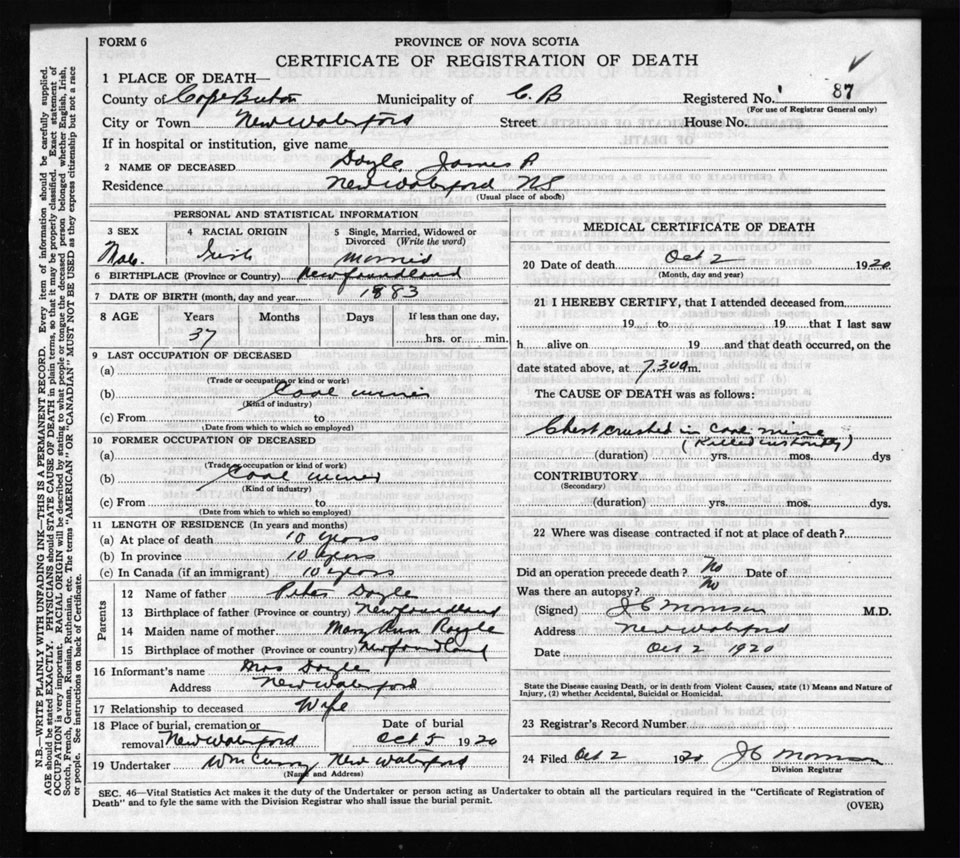 FORM 6
PROVINCE OF NOVA SCOTIA
CERTIFICATE OF REGISTRATION OF DEATH
1 PLACE OF DEATH—
County of Cape Breton Municipality of C. B Registered No. 87
(For use of Registrar General only)
City or Town New Waterford Street House No.
If in hospital or institution, give name
2 NAME OF DECEASED Doyle, James P
Residence New Waterford NS
(Usual place of abode)
PERSONAL AND STATISTICAL INFORMATION
3 SEX
Male
4 RACIAL ORIGIN
Irish
5 Single, Married, Widowed or Divorced (Write the word)
Married
6 BIRTHPLACE (Province or Country) Newfoundland
7 DATE OF BIRTH (month, day and year) 1883
8 AGE Years Months Days If less than one day,
37 hrs. or min.
9 LAST OCCUPATION OF DECEASED
(a)
(Trade or occupation or kind or work)
(b) Coal miner
(Kind of industry)
(c) From to
(Date from which to which so employed)
10 FORMER OCCUPATION OF DECEASED
(a)
(Trade or occupation or kind of work)
(b) Coal miner
(Kind of industry)
(c) From to
(Date from which to which so employed)
11 LENGTH OF RESIDENCE (In years and months)
(a) At place of death 10 years
(b) In province 10 years
(c) In Canada (if an immigrant) 10 years
Parents
12 Name of father Peter Doyle
13 Birthplace of father (Province or country) Newfoundland
14 Maiden name of mother Mary Ann Royle
15 Birthplace of mother (Province or country) Newfoundland
16 Informant's name Mrs Doyle
Address New Waterford
17 Relationship to deceased Wife
18 Place of burial, cremation or Date of burial
removal New Waterford Oct 5 1920
19 Undertaker Wm Curry New Waterford
(Name and Address)
MEDICAL CERTIFICATE OF DEATH
20 Date of death Oct 2 1920
(Month, day and year)
21 I HEREBY CERTIFY, that I attended deceased from
19 to 19 that I last saw
h alive on 19 and that death occurred, on the
date stated above, at 7.30 a m.
The CAUSE OF DEATH was as follows:
Chest crushed in Coal mine
(Killed instantly)
(duration) yrs. mos. dys
CONTRIBUTORY
(Secondary)
(duration) yrs. mos. dys.
22 Where was disease contracted if not at place of death?
Did an operation precede death? No Date of
Was there an autopsy? No
(Signed) J C Morrison M.D.
Address New Waterford
Date Oct 2 1920
State the Disease causing Death, or in death from Violent Causes, state (1) Means and Nature of
Injury, (2) whether Accidental, Suicidal or Homicidal.
23 Registrar's Record Number
24 Filed Oct 2 1920 J C Morrison
Division Registrar
SEC. 46—Vital Statistics Act makes it the duty of the Undertaker or person acting as Undertaker to obtain all the particulars required in the "Certificate of Registration of
Death" and to fyle the same with the Division Registrar who shall issue the burial permit.
(OVER)
N.B.—WRITE PLAINLY WITH UNFADING INK—THIS IS A PERMANENT RECORD. Every item of information should be carefully supplied.
AGE should be stated EXACTLY. PHYSICIANS should STATE CAUSE OF DEATH in plain terms, so that it may be properly classified. Exact statement of
OCCUPATION is very important. RACIAL ORIGIN will be described by stating to what people or tongue the deceased person belonged whether English, Irish,
Scotch, French, German, Russian, Ruthenian, etc. The terms "AMERICAN" OR "CANADIAN" MUST NOT BE USED as they express citizenship but not a race
or people. See instructions on back of Certificate.